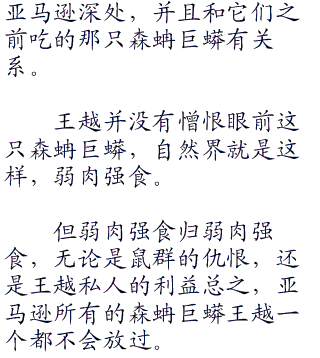 亚马逊深处，并且和它们之
前吃的那只森蚺巨蟒有关
系。
王越并没有憎恨眼前这
只森蚺巨蟒，自然界就是这
样，弱肉强食。
但弱肉强食归弱肉强
食，无论是鼠群的仇恨，还
是王越私人的利益总之，亚
马逊所有的森蚺巨蟒王越一
个都不会放过。